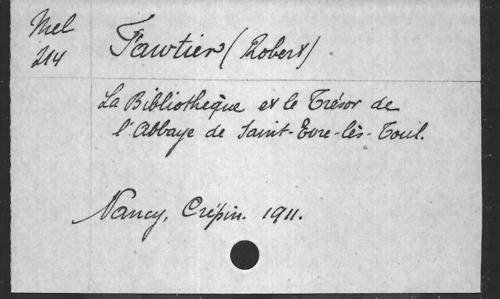 Mel
214
Fawtier (Robert)
La Bibliothèque et le Trésor de
l'Abbaye de Saint-Evre-lès-Toul.
Nancy, Crépin. 1911.